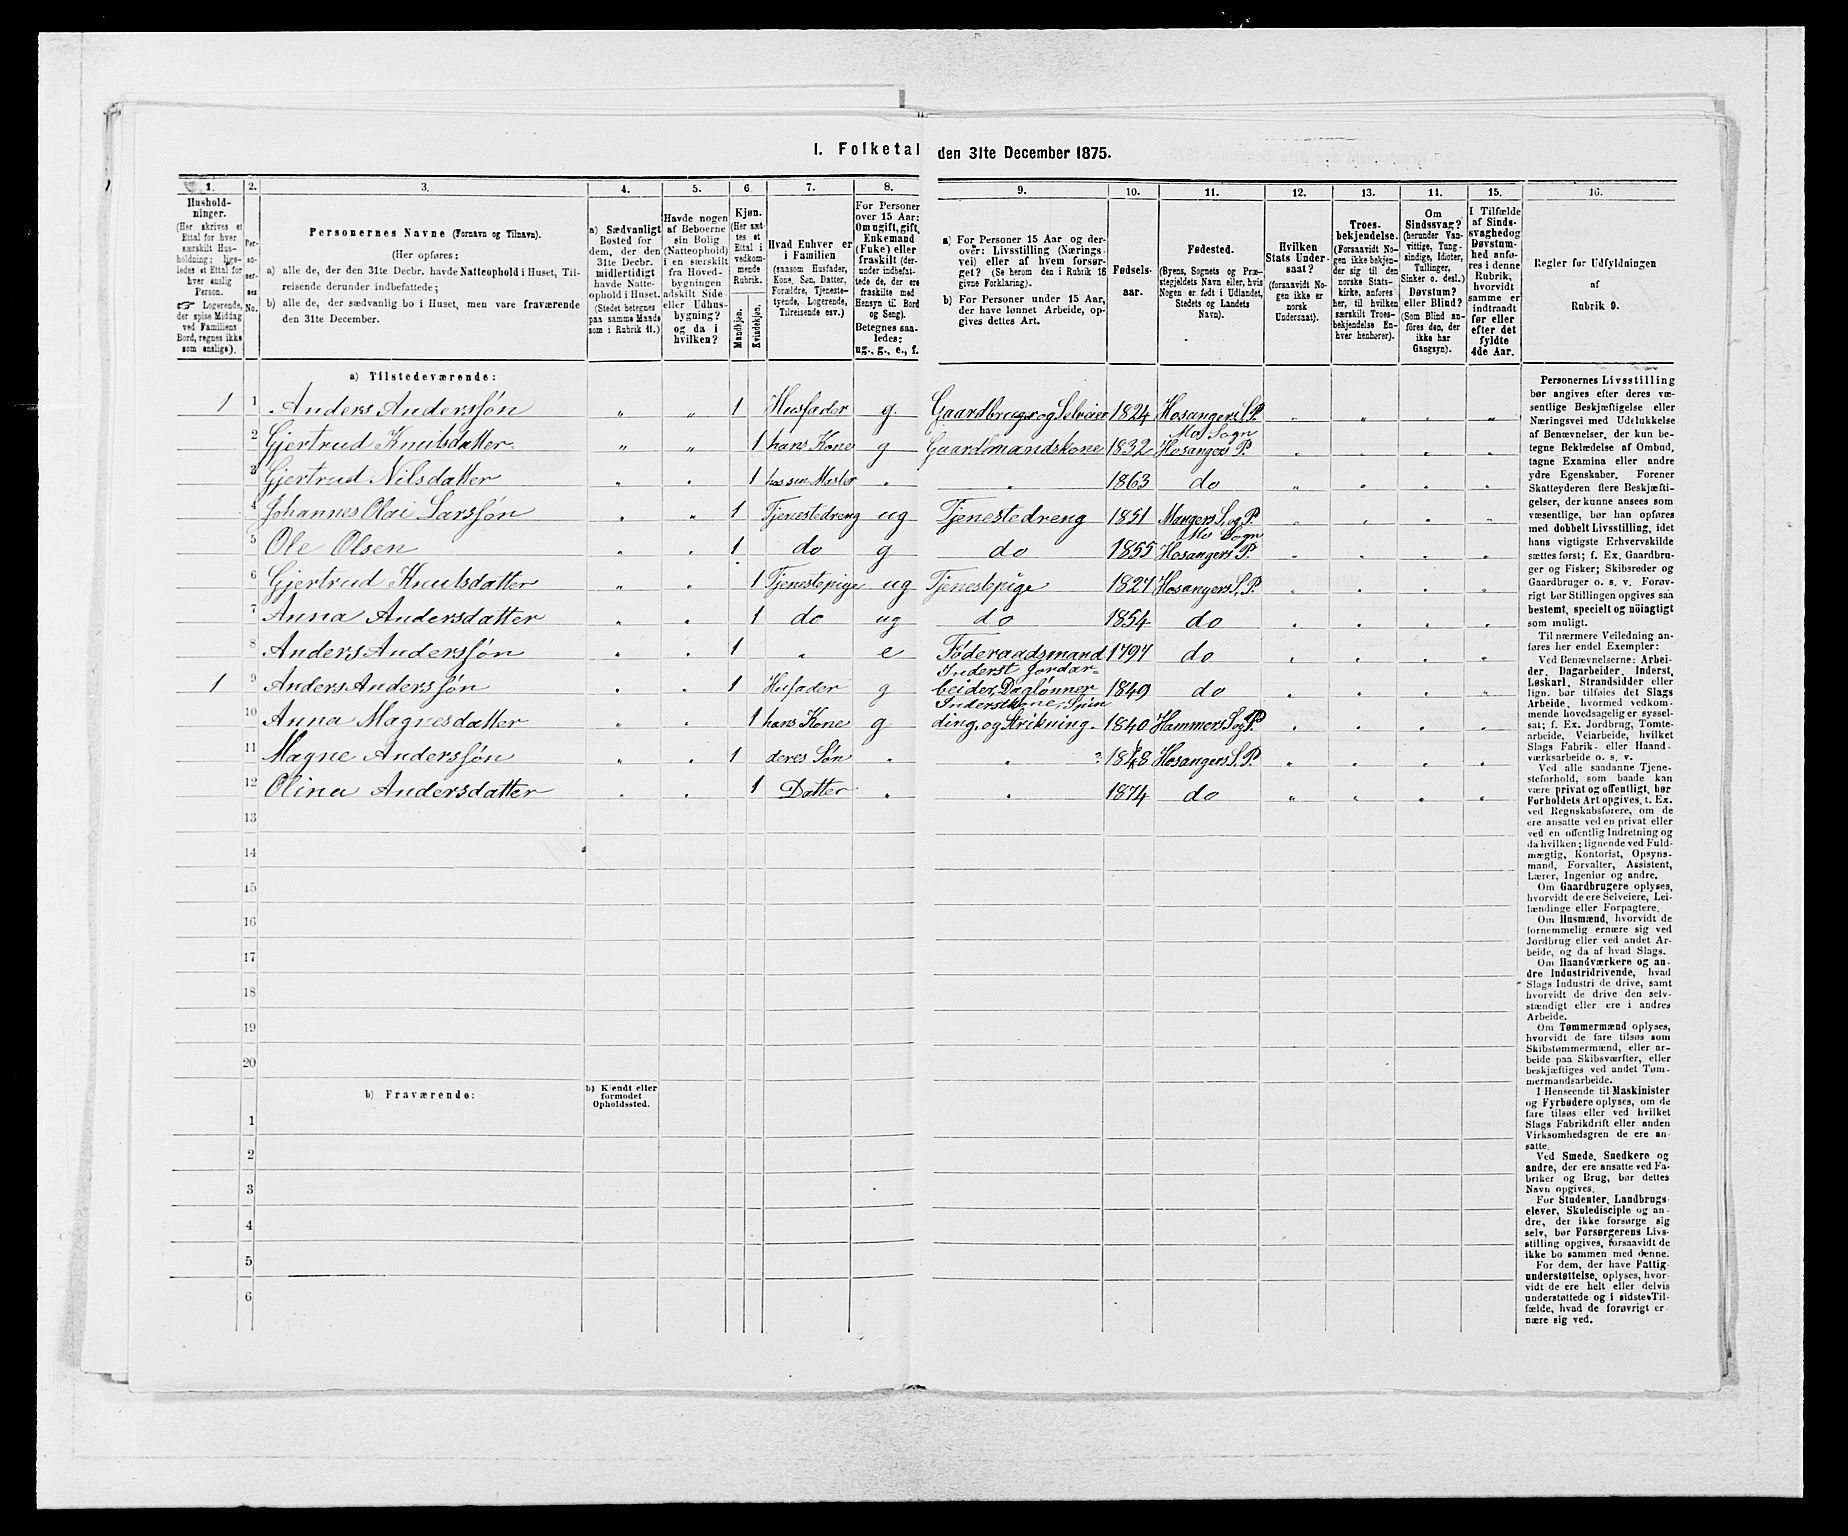 I. Folketal den 31te December 1875.
1. 2. 3. 4. 5. 6. 7. 8. 9. 10. 11. 12. 13. 14. 15. 16.
Hushold-
ninger.
(Her skrives et
Ettal for hver
særskilt Hus-
holdning; lige-
ledes et Ettal for
hver enslig
Person.
☞ Logerende,
der spise Middag
ved Familiens
Bord, regnes ikke
som enslige).
Per-
so-
ner-
nes
No.
Personernes Navne (Fornavn og Tilnavn).
(Her opføres:
a) alle de, der den 31te Decbr. havde Natteophold i Huset, Til-
reisende derunder indbefattede;
b) alle de, der sædvanlig bo i Huset, men vare fraværende
den 31te December.
a) Sædvanligt
Bosted for
dem, der den
31te Decbr.
midlertidigt
havde Natte-
ophold i Huset.
(Stedet betegnes
paa samme Maade
som i Rubrik 11.)
Havde nogen
af Beboerne
sin Bolig
(Natteophold)
i en særskilt
fra Hoved-
bygningen
adskilt Side-
eller Udhus-
bygning?
og da i
hvilken?
Kjøn.
(Her sæt-
tes et
Ettal i
vedkom-
mende
Rubrik.
Mandkjøn.
Kvindekjøn.
Hvad Enhver er
i Familien
(saasom Husfader,
Kone, Søn, Datter,
Forældre, Tjeneste-
tyende, Logerende,
Tilreisende osv.)
For Personer
over 15 Aar:
Om ugift, gift,
Enkemand
(Enke) eller
fraskilt (der-
under indbefat-
tede de, der ere
fraskilte med
Hensyn til Bord
og Seng).
Betegnes saa-
ledes:
ug., g., e., f.
a) For Personer 15 Aar og der-
over: Livsstilling (Nærings-
vei) eller af hvem forsør-
get? (Se herom den i Rubrik 16
givne Forklaring).
b) For Personer under 15 Aar,
der have lønnet Arbeide, op-
gives dettes Art.
Fødsels-
aar.
Fødested.
(Byens, Sognets og Præ-
stegjeldets Navn eller, hvis
Nogen er født i Udlandet,
Stedets og Landets
Navn).
Hvilken
Stats Under-
saat?
(forsaavidt No-
gen ikke er
norsk
Undersaat).
Troes-
bekjendelse.
(Forsaavidt No-
gen ikke bekjen-
der sig til den
norske Stats-
kirke, anføres
her, til hvilken
særskilt Troes-
bekjendelse En-
hver henhører).
Om
Sindssvag?
(herunder Van-
vittige, Tung-
sindige, Idioter,
Tullinger,
Sinker o. desl.)
Døvstum?
eller Blind?
(Som Blind an-
føres den, der
ikke har
Gangsyn).
I Tilfælde
af Sinds-
svaghedog
Døvstum-
hed anfø-
res i denne
Rubrik,
hvorvidt
samme er
indtraadt
før eller
efter det
fyldte
4de Aar.
Regler for Udfyldningen
af
Rubrik 9.
a) Tilstedeværende:
1 1 Anders Anderssøn " " 1 Husfader g. Gaardbruger og Selveier 1824 Hosangers S. P. " " " "
2 Gjertrud Knutsdatter " " 1 hans Kone g Gaardmandskone 1832 Mo Sogn Hosangers P. " " " "
3 Gjertrud Nilsdatter " " 1 hos sin Moster " " 1863 do " " " "
4 Johannes Olai Larssøn " " 1 Tjenestedreng ug Tjenestedreng 1851 Mangers S. og P. " " " "
5 Ole Olsen " " 1 do g do 1855 Mo Sogn Hosangers P. " " " "
6 Gjertrud Knutsdatter " " 1 Tjenestepige ug Tjenestepige 1827 Hosangers S. P. " " " "
7 Anna Andersdatter " " 1 do ug do 1854 do " " " "
8 Anders Anderssøn " " 1 " e Føderaadsmand 1797 do " " " "
1 9 Anders Anderssøn " " 1 Husfader g Inderst Jordar-
beider, Daglønner 1849 do " " " "
10 Anna Magnesdatter " " 1 hans Kone g Inderstkone, Spin
ding, og Strikning. 1840 Hammers S og P. " " " "
11 Magne Anderssøn " " 1 deres Søn " " Hosangers S. P. " " " "
12 Olina Andersdatter " " 1 Datter " " 1874 do " " " "
13
14
15
16
17
18
19
20
b) Fraværende:
b) Kjendt eller
formodet
Opholdssted.
1
2
3
4
5
6
Personernes Livsstilling
bør angives efter deres væ-
sentlige Beskjæftigelse eller
Næringsvei med Udelukkelse
af Benævnelser, der kun be-
tegne Beklædelse af Ombud,
tagne Examina eller andre
ydre Egenskaber. Forener
Skatteyderen flere Beskjæfti-
gelser, der kunne ansees som
væsentlige, bør han opføres
med dobbelt Livsstilling, idet
hans vigtigste Erhvervskilde
sættes først; f. Ex. Gaardbru-
ger og Fisker; Skibsreder og
Gaardbruger o. s. v. Forøv-
rigt bør Stillingen opgives saa
bestemt, specielt og nöiagtigt
som muligt.
Til nærmere Veiledning an-
føres her endel Exempler:
Ved Benævnelserne: Arbei-
der, Dagarbeider, Inderst,
Løskarl, Strandsidder eller
lign. bør tilføies det Slags
Arbeide, hvormed vedkom-
mende hovedsagelig er syssel-
sat; f. Ex. Jordbrug, Tomte-
arbeide, Veiarbeide, hvilket
Slags Fabrik- eller Haand-
værksarbeide o. s. v.
Ved alle saadanne Tjene-
steforhold, som baade kan
være privat og offentligt, bør
Forholdets Art opgives, t. Ex.
ved Regnskabsførere, om de
ere ansatte ved en privat eller
ved en offentlig Indretning og
da hvilken; lignende ved Fuld-
mægtig, Kontorist, Opsyns-
mand, Forvalter, Assistent,
Lærer, Ingeniør og andre.
Om Gaardbrugere oplyses,
hvorvidt de ere Selveiere, Lei-
lændinge eller Forpagtere.
Om Husmænd, hvorvidt de
fornemmelig ernære sig ved
Jordbrug eller ved andet Ar-
beide, og da af hvad Slags.
Om Haandværkere og an-
dre Industridrivende, hvad
Slags Industri de drive, samt
hvorvidt de drive den selv-
stændigt eller ere i andres
Arbeide.
Om Tømmermænd oplyses,
hvorvidt de fare tilsøs som
Skibstømmermænd, eller ar-
beide paa Skibsværfter, eller
beskjæftiges ved andet Tøm-
mermandsarbeide.
I Henseende til Maskinister
og Fyrbødere oplyses, om de
fare tilsøs eller ved hvilket
Slags Fabrikdrift eller anden
Virksomhedsgren de ere an-
satte.
Ved Smede, Snedkere og
andre, der ere ansatte ved Fa-
briker og Brug, bør dettes
Navn opgives.
For Studenter, Landbrugs-
elever, Skoledisciple og an-
dre, der ikke forsørge sig
selv, bør Forsørgerens Livs-
stilling opgives, forsaavidt de
ikke bo sammen med denne.
For dem, der have Fattig-
understøttelse, oplyses, hvor-
vidt de ere helt eller delvis
understøttede og i sidste Til-
fælde, hvad de forøvrigt er-
nære sig ved.